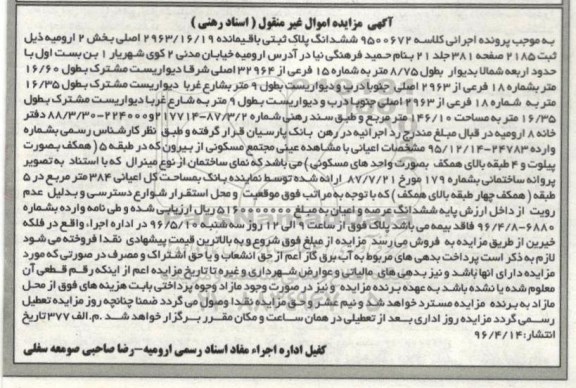 آگهی مزایده اموال غیر منقول ( اسناد رهنی )
به موجب پرونده اجرائی کلاسه ۹۵۰۰۶۷۲ ششدانگ پلاک ثبتی باقیمانده ۲۹۶۳/۱۶/۱۹ اصلی بخش ۲ ارومیه ذیل
ثبت ۲۱۸۵ صفحه ۳۸۱ جلد ۲۱ بنام حمید فرهنگی نیا در آدرس ارومیه خیابان مدنی ۲ کوی شهریار ۱ بن بست اول با
حدود اربعه شمالا بدیوار بطول ۸/۷۵ متر به شماره ۱۵ فرعی از ۳۲۹۶۴ اصلی شرقا دیواریست مشترک بطول ۱۶/۶۰
متر بشماره ۱۸ فرعی از ۲۹۶۳ اصلی جنوبا درب و دیواریست بطول ۹ متر بشارع غربا دیواریست مشترک بطول ۱۶/۳۵
متر به شماره ۱۸ فرعی از ۲۹۶۳ اصلی جنوبا درب و دیواریست بطول ۹ متر به شارع غربا دیواریست مشترک بطول
۱۶/۳۵ متر به مساحت ۱۴۶/۱۰ متر مربع و طبق سند رهنی شماره ۲۱۷۷۱۴-۸۷/۳/۲ و ۲۲۴۰۰۰-۸۸/۳/۳۰ دفتر
خانه ۸ ارومیه در قبال مبلغ مندرج در اجرائیه در رهن بانک پارسیان قرار گرفته و طبق نظر کارشناس رسمی بشماره
وارده ۲۴۷۸۳-۹۵/۱۲/۱۴ مشخصات اعیانی با مشاهده عینی مجتمع مسکونی از بیرون که در طبقه ۵ ( همکف بصورت
پیلوت و ۴ طبقه بالای همکف بصورت واحد های مسکونی ) می باشد که نمای ساختمان از نوع مینرال که با استناد به تصویر
پروانه ساختمانی بشماره ۱۷۹ مورخ ۸۷/۷/۲۱ ارائه شده توسط نماینده بانک بمساحت کل اعیانی ۳۸۴ متر مربع در ۵
طبقه ( همکف چهار طبقه بالای همکف ) که با توجه به مراتب فوق موقعیت و محل استقرار شوارع دسترسی و بدلیل عدم
رویت از داخل ارزش پایه ششدانگ عرصه و اعیان به مبلغ ریال ارزیابی شده و طی نامه وارده بشماره
۶۸۸۰-۹۶/۴/۸ فاقد بیمه می باشد پلاک فوق از ساعت ۹ الی ۱۲ روز سه شنبه ۹۶/۵/۱۰ در اداره اجراء واقع در فلکه
خیرین از طریق مزایده به فروش می رسد مزایده از مبلغ فوق شروع و به بالاترین قیمت پیشهادی نقدا فروخته می شود
لازم به ذکر است پرداخت بدهی های مربوط به آب برق گاز اعم از حق انشعاب و یا حق اشتراک و مصرف در صورتی که مورد
مزایده دارای انها باشد و نیز بدهی های مالیاتی و عوارض شهرداری و غیره تا تاریخ مزایده اعم از اینکه رقم قطعی آن
معلوم شده یا نشده باشد به عهده برنده مزایده و نیز در صورت وجود مازاد وجوه پرداختی بابت هزینه های فوق از محل
مازاد به برنده مزایده مسترد خواهد شد و نیم عشر و حق مزایده نقدا وصول می گردد ضمنا چنانچه روز مزایده تعطیل
رسمی گردد مزایده روز اداری بعد از تعطیلی در همان ساعت و مکان مقرر برگزار خواهد شد .م.الف ۳۷۷ تاریخ
انتشار: ۹۶/۴/۱۴
کفیل اداره اجراء مفاد اسناد رسمی ارومیه-رضا صاحبی صومعه سفلی